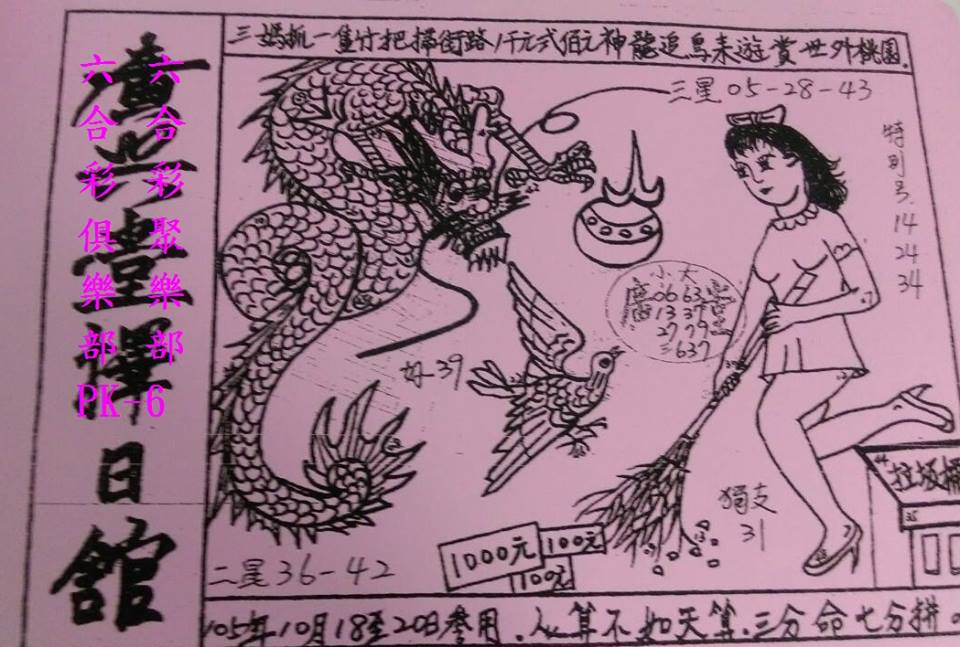 三媽抓一隻竹把掃街路1仟元弍佰元神龍追鳥來遊賞世外桃園.
廣興堂擇日舘
六合彩俱樂部
六合彩聚樂部
PK-6
三星05-28-43
特別号.
14
24
34
小 大
06 63
13 37
27 79
三637
好39
獨支
31
垃圾桶
1000元
100元
100元
二星36-42
105年10月18至20日參用.人算不如天算.三分命七分拼.